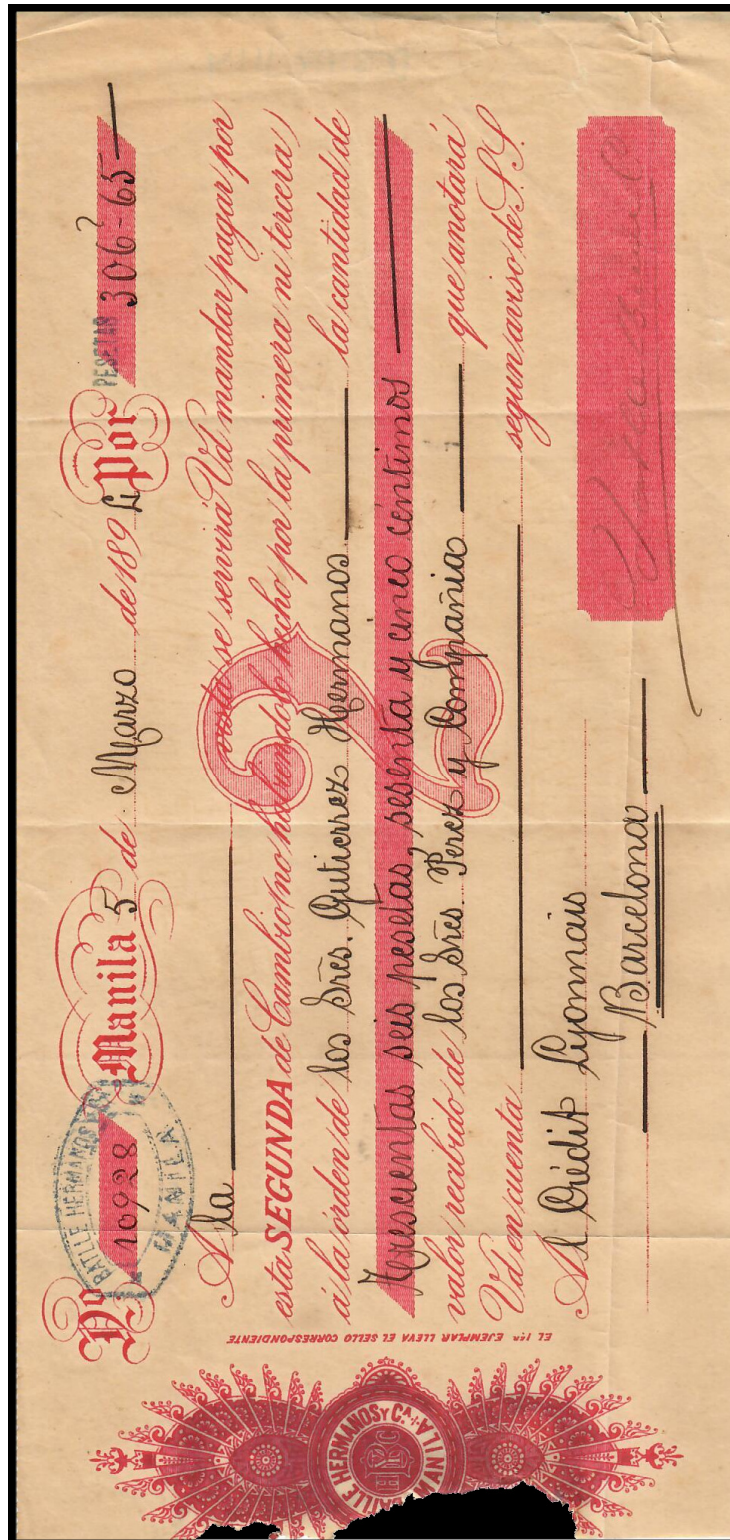 No. 10928 Manila 5 de Marzo de 1894 Por PESETAS 306-65
BATLLE HERMANOS
MANILA
A la vista se servirá Vd mandar pagar por
esta SEGUNDA de Cambio (no habiendolo hecho por la primera ni tercera)
á la órden de los Sres. Gutierrez Hermanos la cantidad de
Trescientas seis pesetas, sesenta y cinco céntimos
valor recibido de los Sres. Perez y Compañia que anotará
Vd en cuenta segun aviso de S.S.
Al Crédit Lyonnais
Barcelona
2
EL 1er EJEMPLAR LLEVA EL SELLO CORRESPONDIENTE
BATLLE HERMANOS Y Ca. MANILA